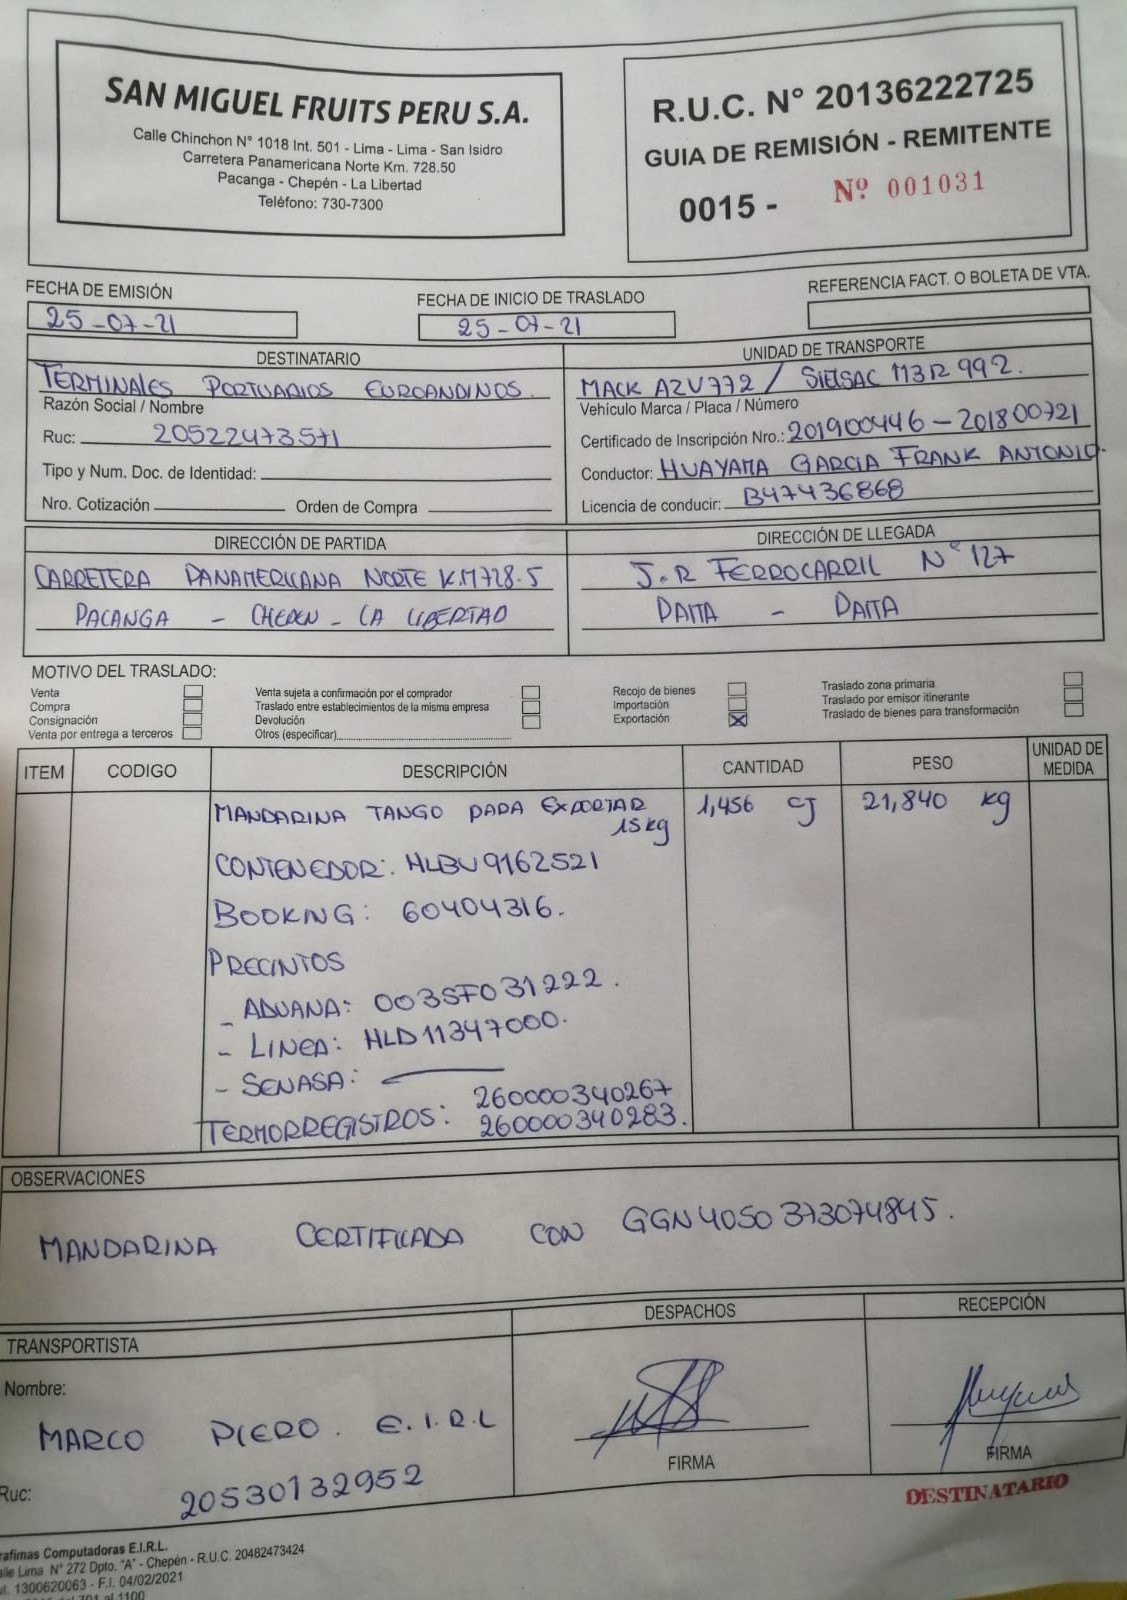 SAN MIGUEL FRUITS PERU S.A.
Calle Chinchon N° 1018 Int. 501 - Lima - Lima - San Isidro
Carretera Panamericana Norte Km. 728.50
Pacanga - Chepén - La Libertad
Teléfono: 730-7300
R.U.C. N° 20136222725
GUIA DE REMISIÓN - REMITENTE
0015 - Nº 001031
FECHA DE EMISIÓN
25-07-21
FECHA DE INICIO DE TRASLADO
25-07-21
REFERENCIA FACT. O BOLETA DE VTA.
DESTINATARIO
TERMINALES PORTUARIOS EUROANDINOS
Razón Social / Nombre
Ruc: 20522473571
Tipo y Num. Doc. de Identidad:
Nro. Cotización Orden de Compra
UNIDAD DE TRANSPORTE
MACK AZV772 / 992.
Vehículo Marca / Placa / Número
Certificado de Inscripción Nro.: 201900446 - 201800721
Conductor: HUAYAMA GARCIA FRANK ANTONIO.
Licencia de conducir: B47436868
DIRECCIÓN DE PARTIDA
CARRETERA PANAMERICANA NORTE K.M728.5
PACANGA - CHEPEN - LA LIBERTAD
DIRECCIÓN DE LLEGADA
J.R FERROCARRIL N° 127
PAITA - PAITA
MOTIVO DEL TRASLADO:
Venta
Compra
Consignación
Venta por entrega a terceros
Venta sujeta a confirmación por el comprador
Traslado entre establecimientos de la misma empresa
Devolución
Otros (especificar)
Recojo de bienes
Importación
Exportación X
Traslado zona primaria
Traslado por emisor itinerante
Traslado de bienes para transformación
ITEM CODIGO DESCRIPCIÓN CANTIDAD PESO UNIDAD DE MEDIDA
MANDARINA TANGO PARA EXPORTAR 1,456 CJ 21,840 kg
15kg
CONTENEDOR: HLBU9162521
BOOKING: 60404316.
PRECINTOS
- ADUANA: 003SF031222.
- LINEA: HLD11347000.
- SENASA:
TERMORREGISTROS: 260000340267
260000340283.
OBSERVACIONES
MANDARINA CERTIFICADA CON GGN4050373074845.
TRANSPORTISTA
Nombre:
MARCO PIERO. E.I.R.L
Ruc: 20530132952
DESPACHOS
FIRMA
RECEPCIÓN
FIRMA
DESTINATARIO
rafimas Computadoras E.I.R.L.
alle Lima N° 272 Dpto. "A" - Chepén - R.U.C. 20482473424
ut. 1300620063 - F.I. 04/02/2021
del 701 al 1100